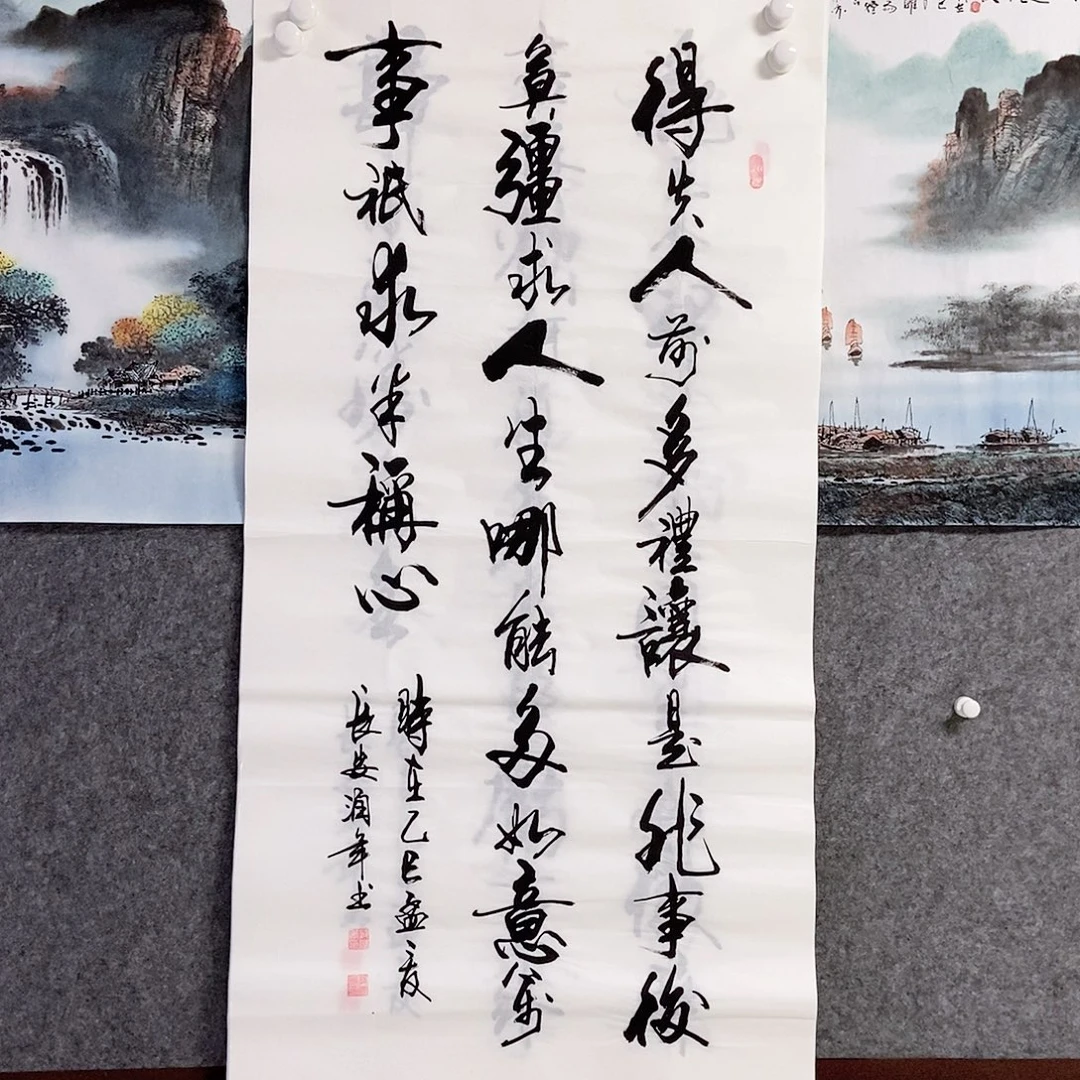 得失人前多禮讓是非事後
莫彊求人生哪能多如意萬
事祇求半稱心
時在乙巳孟夏
長安潤年書